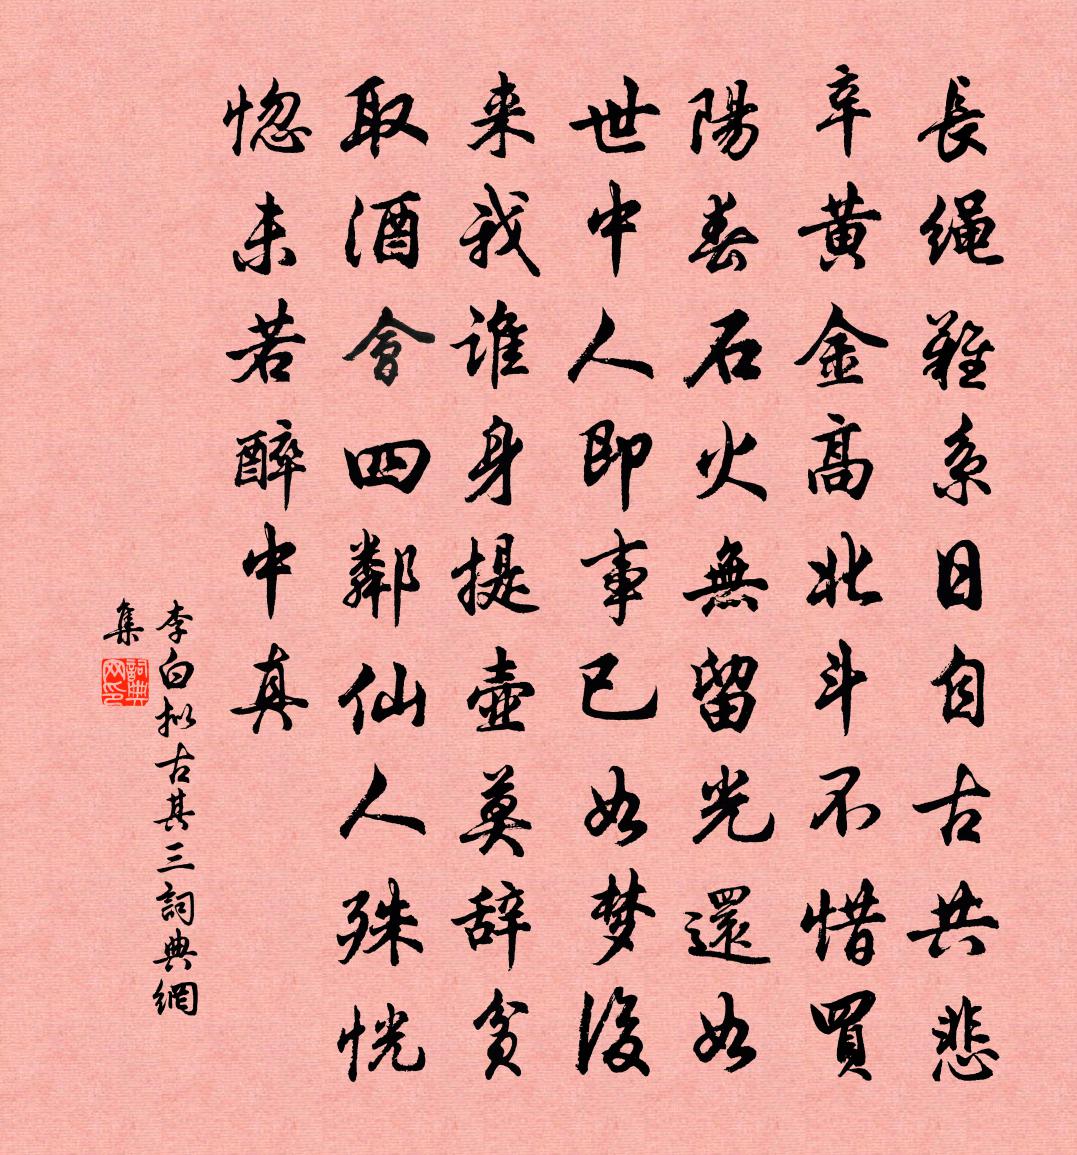 長绳難系日自古共悲
辛黄金高北斗不惜買
陽春石火無留光還如
世中人即事已如梦後
来我谁身提壶莫辞贫
取酒會四鄰仙人殊恍
惚未若醉中真
李白拟古其三詞典網
集
詞典网印